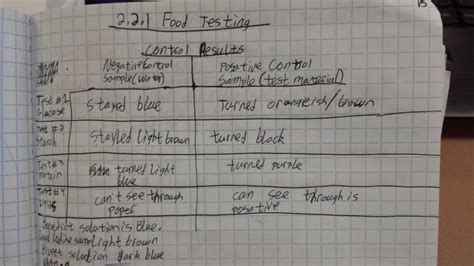 2.2.1 Food Testing
Control Results
Negative Control
Sample (water)
Posative Control
Sample (test material)
Test #1
Glucose
Stayed blue
Turned orangeish/brown
Test # 2
Starch
Stayed light brown
turned black
Test #3
Protein
turned light
blue
turned purple
Test #4
can't see through
paper
can see through is
posative
Benedict solution is blue.
light brown
solution dark blue